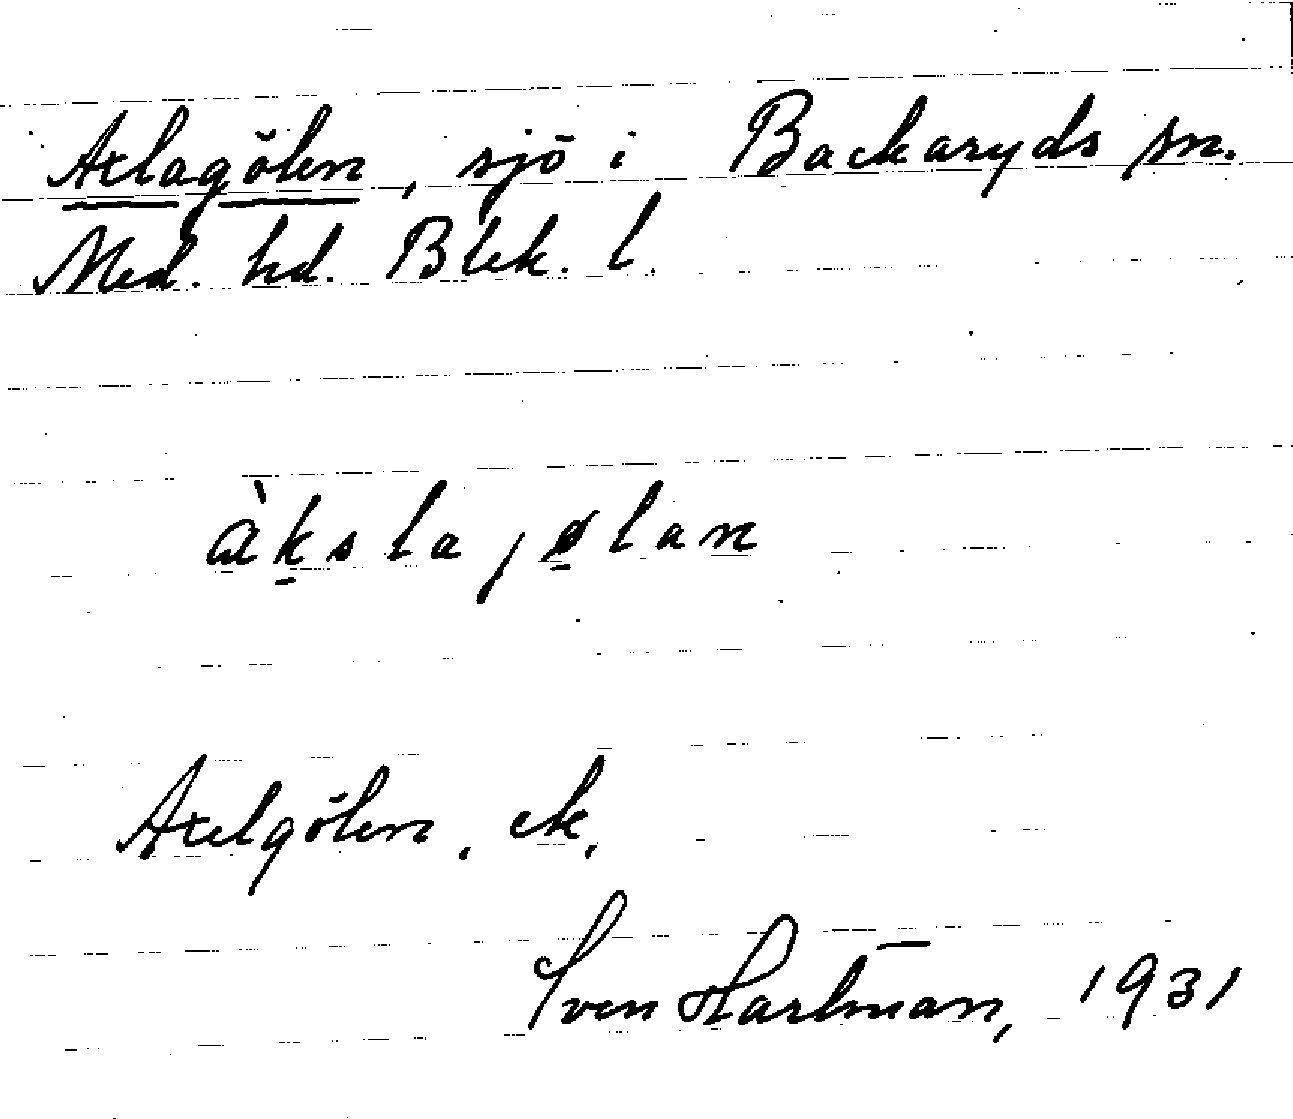 Axlagölen, sjö i Backaryds sn.
Med. hd. Blek. l.
àksla jølan
Axelgölen, ek.
Sven Hartman, 1931